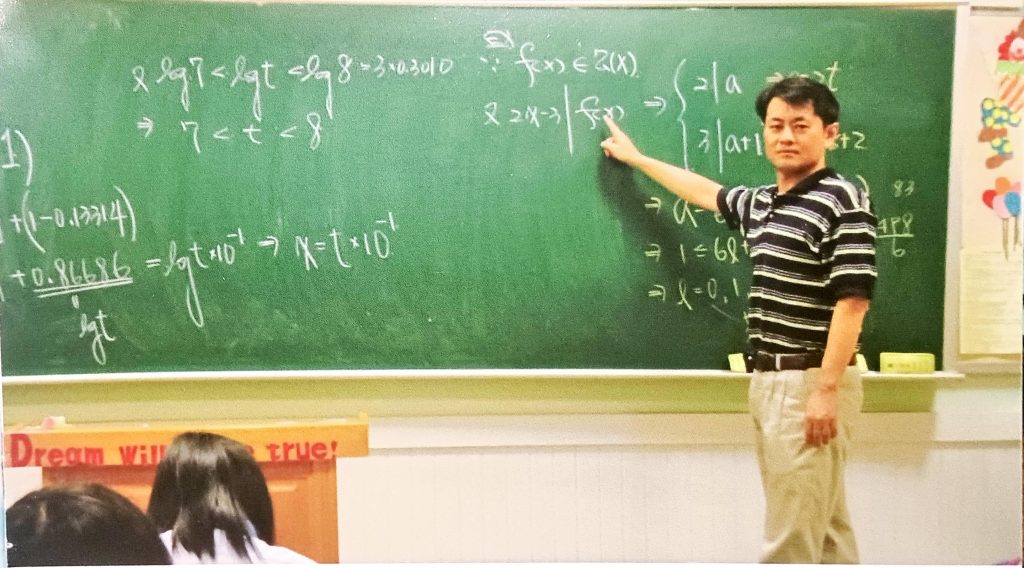 & lg7 < lgt < lg8 = 3×0.3010
⇒ 7 < t < 8
1)
+(1-0.13314)
+0.86686 = lgt×10⁻¹ ⇒ x = t×10⁻¹
lgt
∵ f(x) ∈ Z(x)
& 2x-3 | f(x) ⇒ { 2|a
3|a+1
t
+2
⇒ a=
⇒ 1 ≤ 6l+
⇒ l = 0, 1
83
6
Dream Will true!